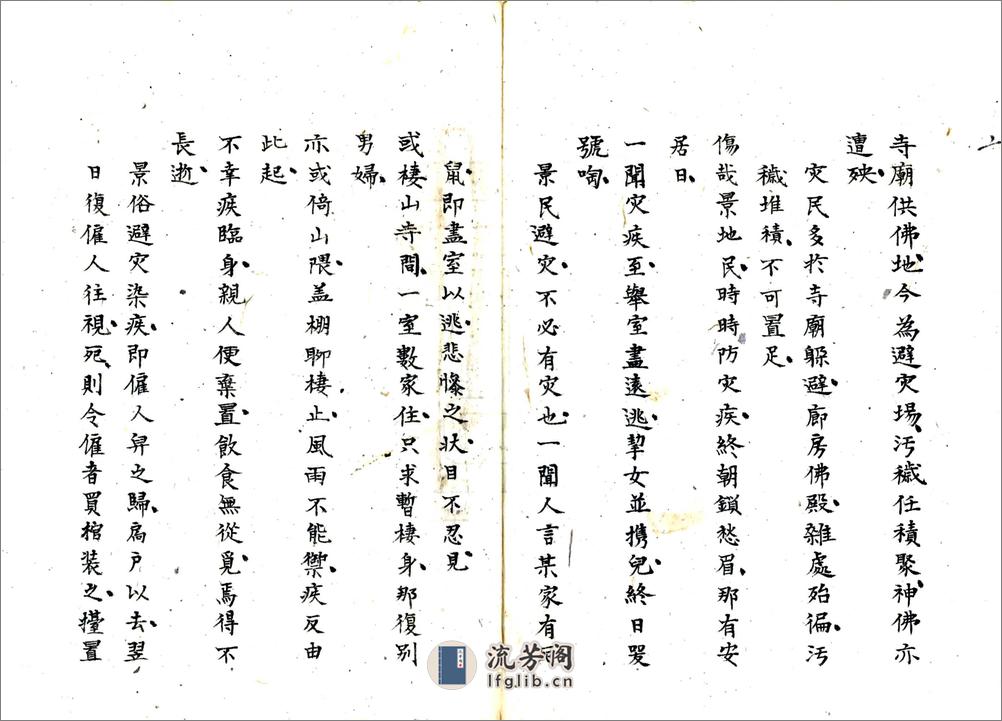 寺廟供佛地今為避灾場汚穢任積聚神佛亦
遭殃
灾民多於寺廟躲避廊房佛殿雜處殆徧汚
穢堆積不可置足
傷哉景地民時時防灾疾終朝鎖愁眉那有安
居日
一聞灾疾至舉室盡遠逃挈女並携兒終日哭
號啕
景民避灾不必有灾也一聞人言某家有死
鼠即盡室以逃悲慘之狀目不忍見
或棲山寺間一室數家住只求暫棲身那復別
男婦
亦或倚山隈盖棚聊棲止風雨不能禦疾反由
此起
不幸疾臨身親人便棄置飲食無從覓焉得不
長逝
景俗避灾染疾即僱人舁之歸扃戶以去翌
日復僱人往視死則令僱者買棺装之擡置
流芳阁
lfglib.cn